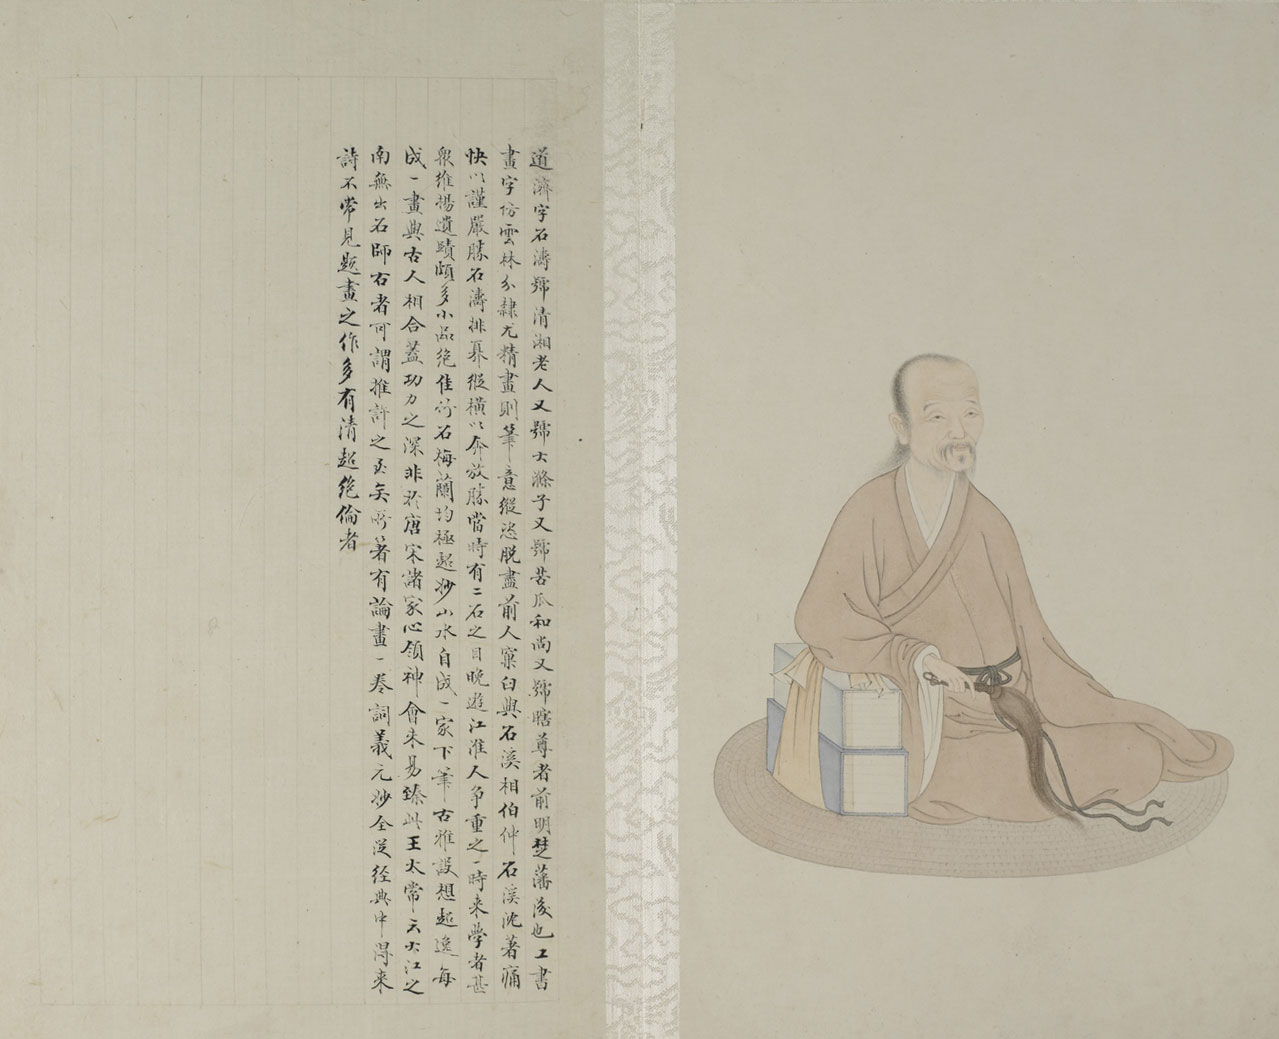 道濟字石濤號清湘老人又號大滌子又號苦瓜和尚又號瞎尊者前明楚藩後也工書
畫字仿雲林分隸尤精畫則筆意縱恣脫盡前人窠臼與石溪相伯仲石溪沈著痛
快以謹嚴勝石濤排奡縱橫以奔放勝當時有二石之目晚遊江淮人爭重之一時來學者甚
眾維揚遺蹟頗多小品絕佳竹石梅蘭均極超妙山水自成一家下筆古雅設想超逸每
成一畫與古人相合蓋功力之深非於唐宋諸家心領神會未易臻此王太常云大江之
南無出石師右者可謂推許之至矣所著有論畫一卷詞義元妙全從經典中得來
詩不常見題畫之作多有清超絕倫者